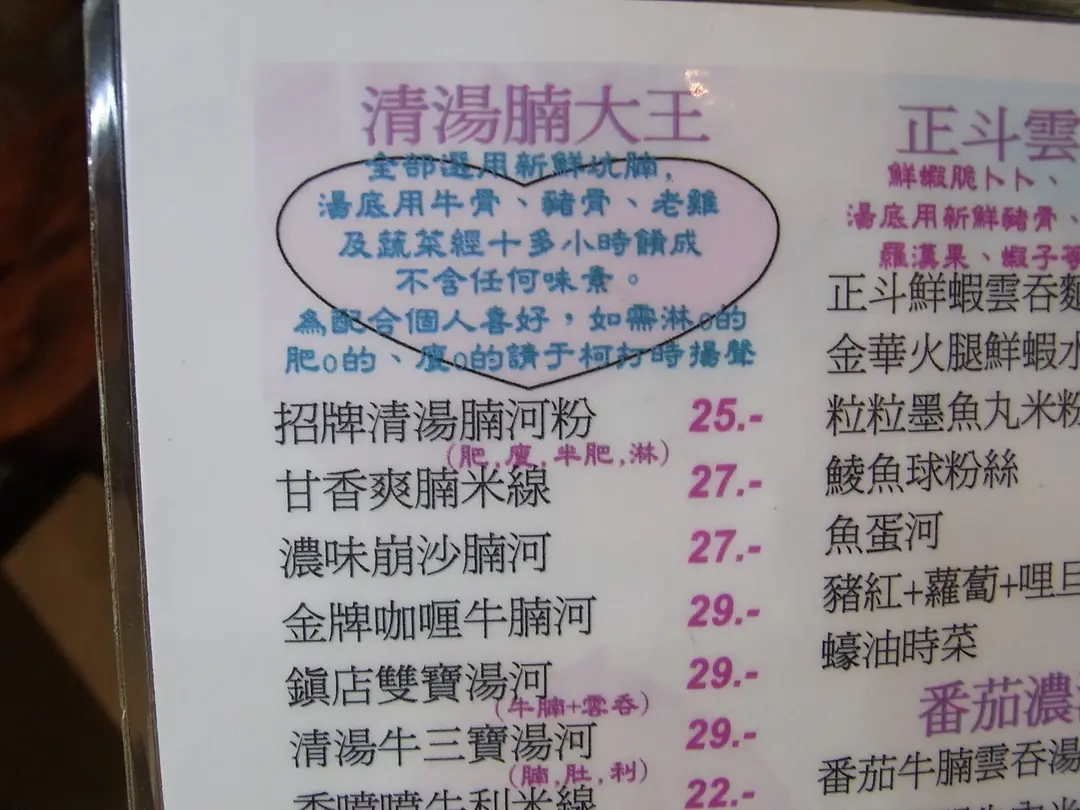 清湯腩大王
全部選用新鮮坑腩,
湯底用牛骨、豬骨、老雞
及蔬菜經十多小時餚成
不含任何味素。
為配合個人喜好，如需淋o的
肥o的、廋o的請于柯打時揚聲
招牌清湯腩河粉 25.-
(肥,廋,半肥,淋)
甘香爽腩米線 27.-
濃味崩沙腩河 27.-
金牌咖喱牛腩河 29.-
鎮店雙寶湯河 29.-
(牛腩+雲吞)
清湯牛三寶湯河 29.-
(腩,肚,利)
香噴噴牛利米線 22.-
正斗雲
鮮蝦脆卜卜、
湯底用新鮮豬骨、
羅漢果、蝦子等
正斗鮮蝦雲吞麵
金華火腿鮮蝦水
粒粒墨魚丸米粉
鯪魚球粉絲
魚蛋河
豬紅+蘿蔔+哩旦
蠔油時菜
番茄濃
番茄牛腩雲吞湯